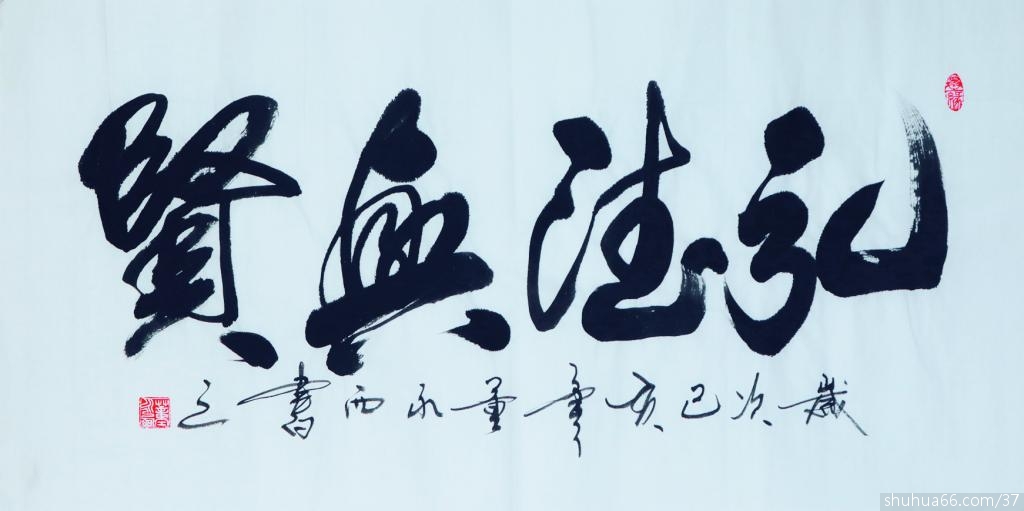 弘德興賢
歲次己亥年董永西書之
shuhua66.com/37